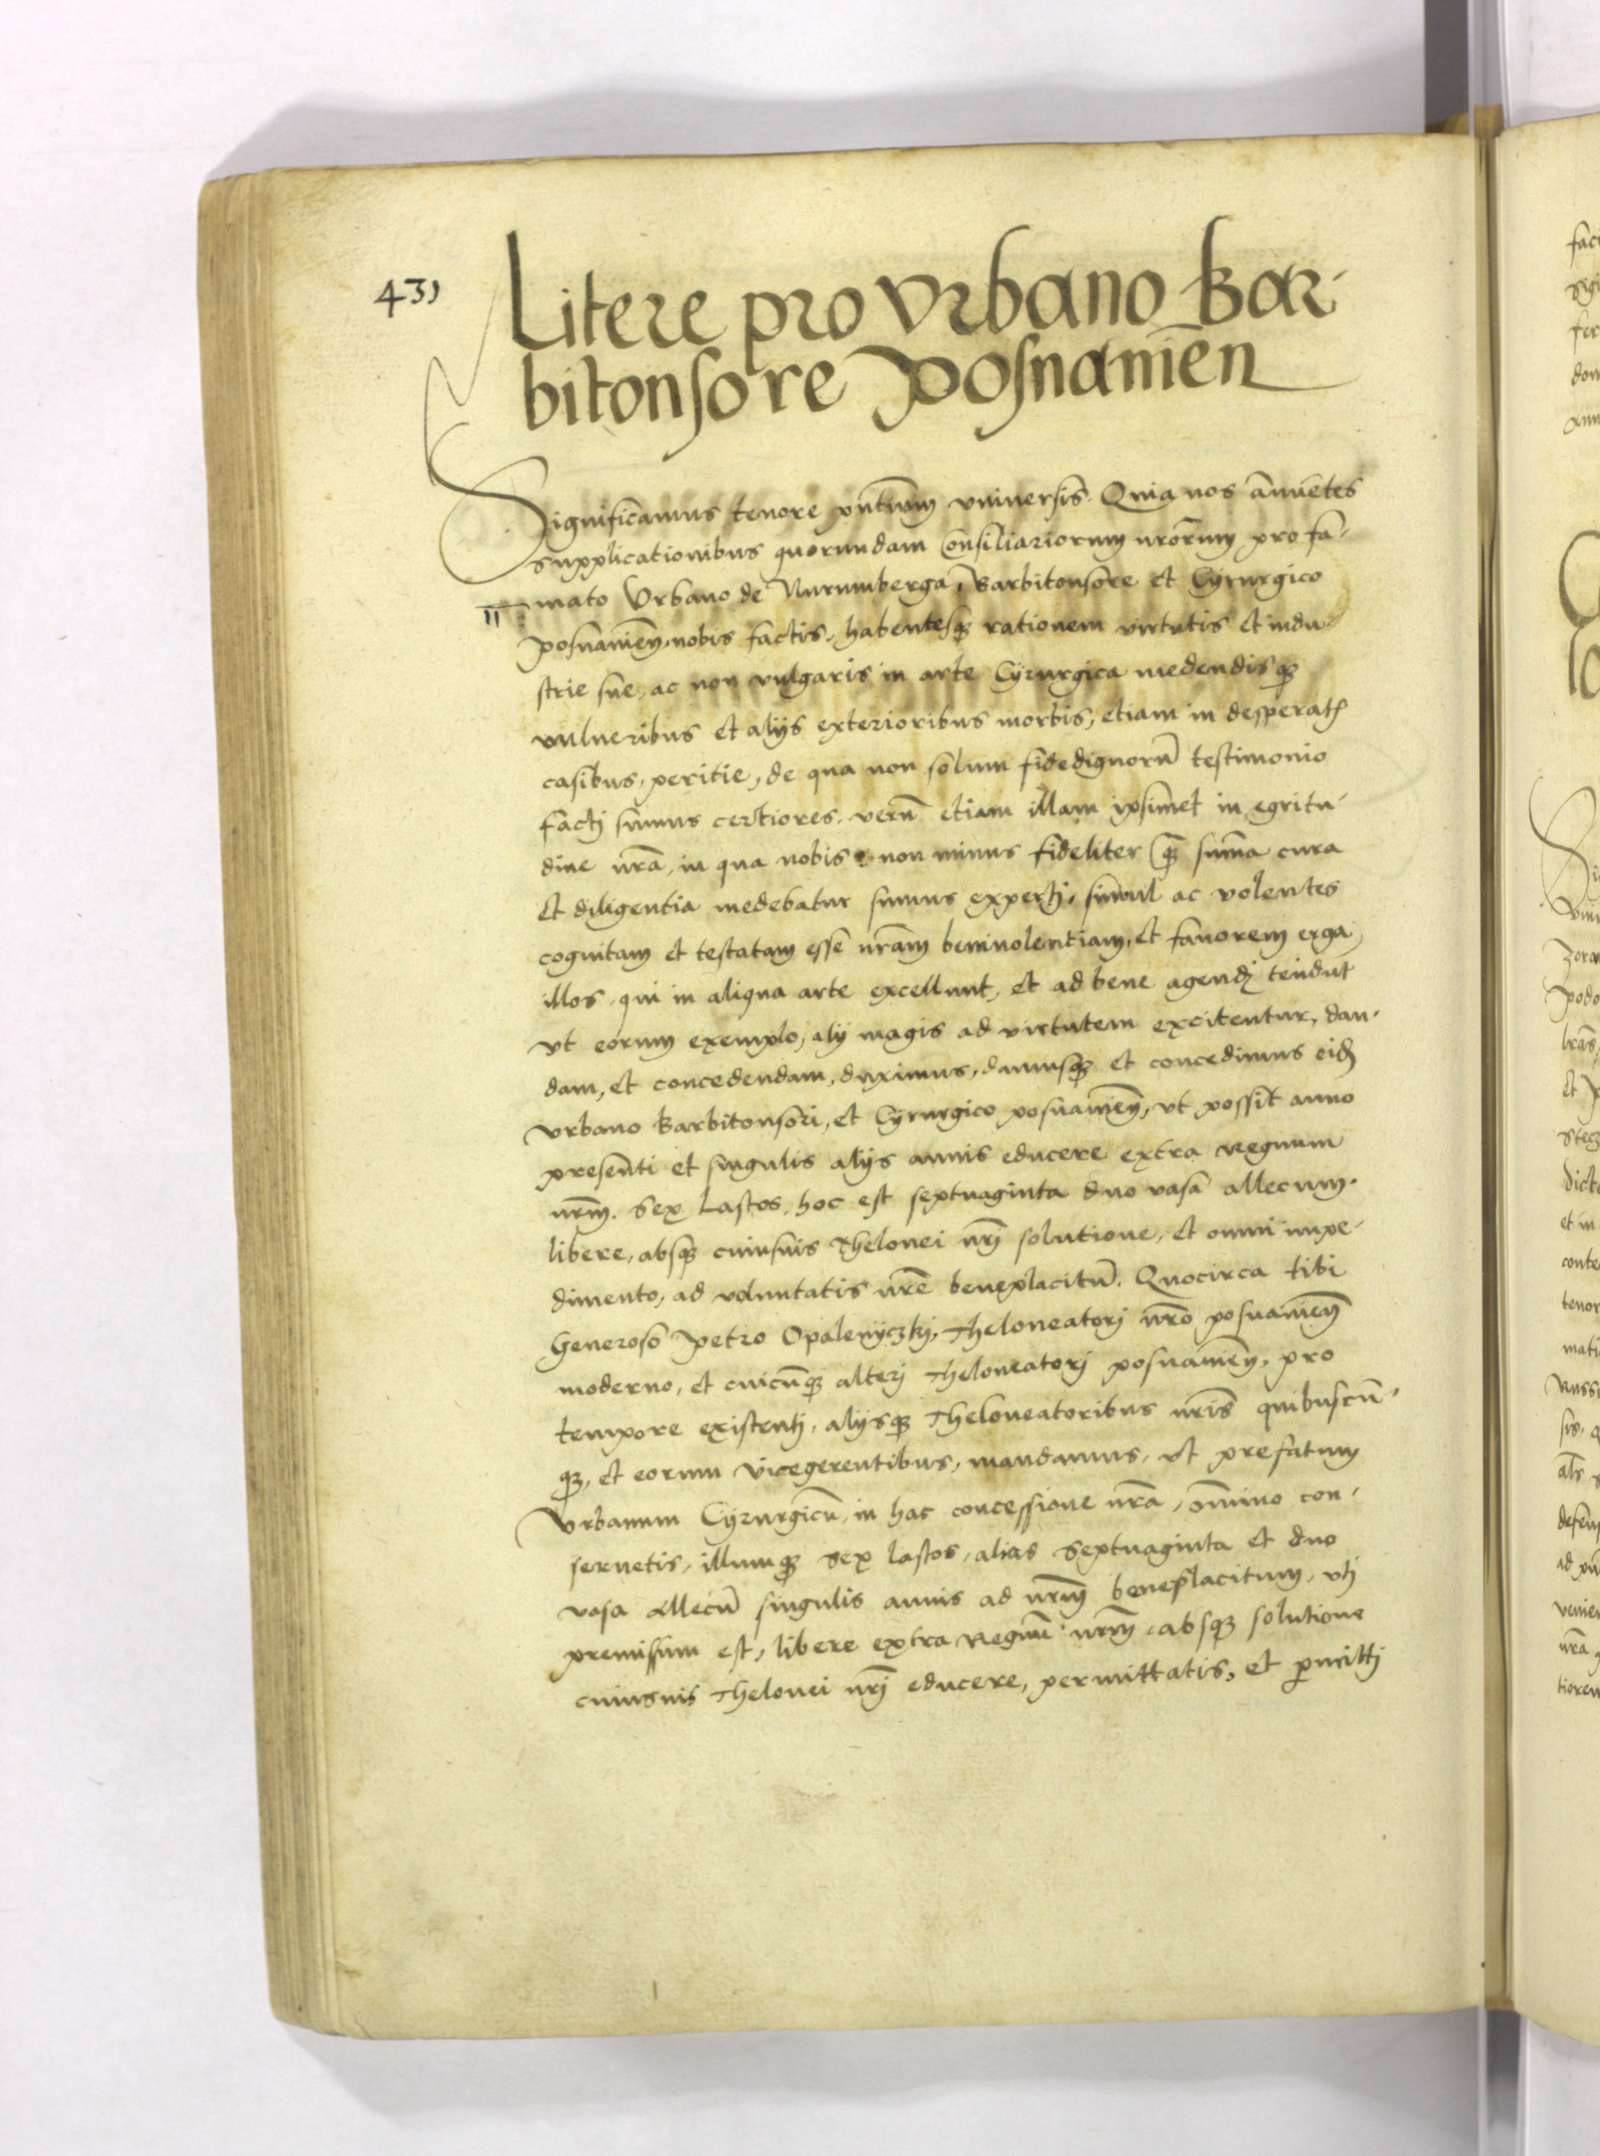 431
Litere pro Vrbano Bar-
bitonsore Posnanien̄
Significamus tenore pn̄tium vniuersis. Quia nos an̄uētes
supplicationibus quorundam Consiliariorum nr̄orum pro fa-
mato Vrbano de Nurumberga, Barbitonsore et Cyrurgico
II
Posnanien̄, nobis factis, habentesq̧ rationem virtutis et indu-
strie sue, ac non vulgaris in arte Cyrurgica medendisq̧
vulneribus et alijs exterioribus morbis, etiam in desperatꝭ
casibus, peritie, de qua non solum fidedignorū testimonio
factj sumus certiores, verū etiam illam ipsimet in egritu-
dine nr̄a, in qua nobis non minus fideliter q̄ȝ sum̄a cura
et diligentia medebatur sumus expertj, simul ac volentes
cognitam et testatam esse nr̄am beniuolentiam, et fauorem erga
illos, qui in aliqua arte excellunt, et ad bene agendū tendūt
vt eorum exemplo, alij magis ad virtutem excitentur, dan-
dam, et concedendam, duximus, damusq̧ et concedimus eidē
Vrbano Barbitonsori, et Cyrurgico posnanien̄, vt possit anno
presenti et singulis alijs annis educere extra Regnum
nr̄m. Sex Lastos, hoc est septuaginta duo vasa allecum.
libere, absq̧ cuiusuis Thelonei nr̄j solutione, et omni impe-
dimento, ad voluntatis nr̄e beneplacitū. Quocirca tibi
Generoso Petro Opalenyczkj, Theloneatorj nr̄o posnanien̄
moderno, et cuicūq̧ alterj Theloneatorj posnanien̄, pro
tempore existentj, alijsq̧ Theloneatoribus nr̄is quibuscū-
q̧, et eorum vicegerentibus, mandamus, vt prefatum
Vrbanum Cyrurgicū, in hac concessione nr̄a, om̄ino con-
seruetis, illumq̧ sex lastos, alias septuaginta et duo
vasa allecū singulis annis ad nr̄m beneplacitum, vtj
premissum est, libere extra Regnū nr̄m, absq̧ solutione
cuiusuis Thelonei nr̄j educere, permittatis, et p̱mittj